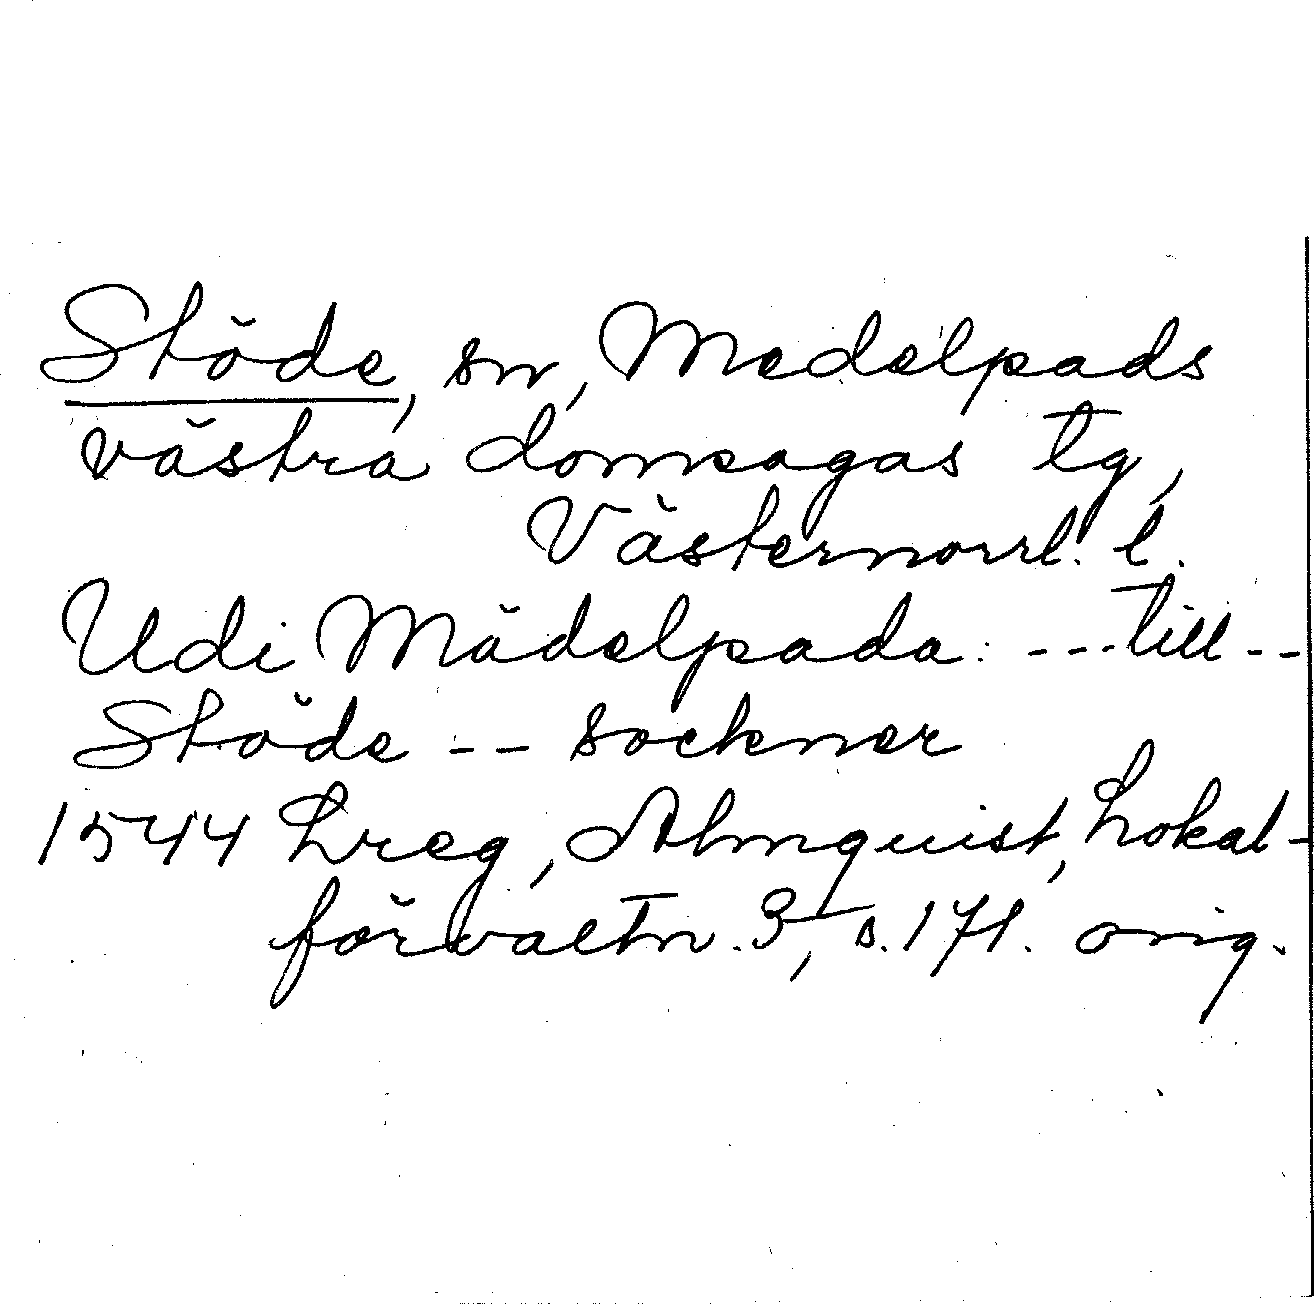 Stöde, sn, Medelpads
västra domsagas tg,
Västernorrl. l.
Udi Mädelpada: ---till--
Stöde -- sockner
1544 Lreg, Almquist, Lokal-
förvaltn. 3, s. 171. orig.